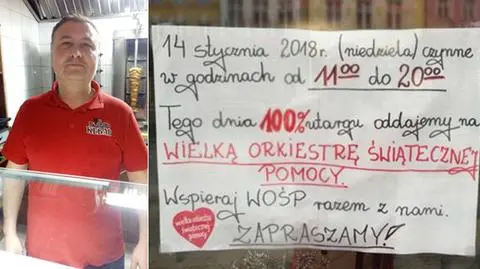 KEBAB
14 stycznia 2018r. (niedziela) czynne
w godzinach od 11⁰⁰ do 20⁰⁰
Tego dnia 100% utargu oddajemy na
WIELKĄ ORKIESTRĘ ŚWIĄTECZNEJ
POMOCY.
Wspieraj WOŚP razem z nami.
wielka orkiestra
świątecznej
pomocy
ZAPRASZAMY!